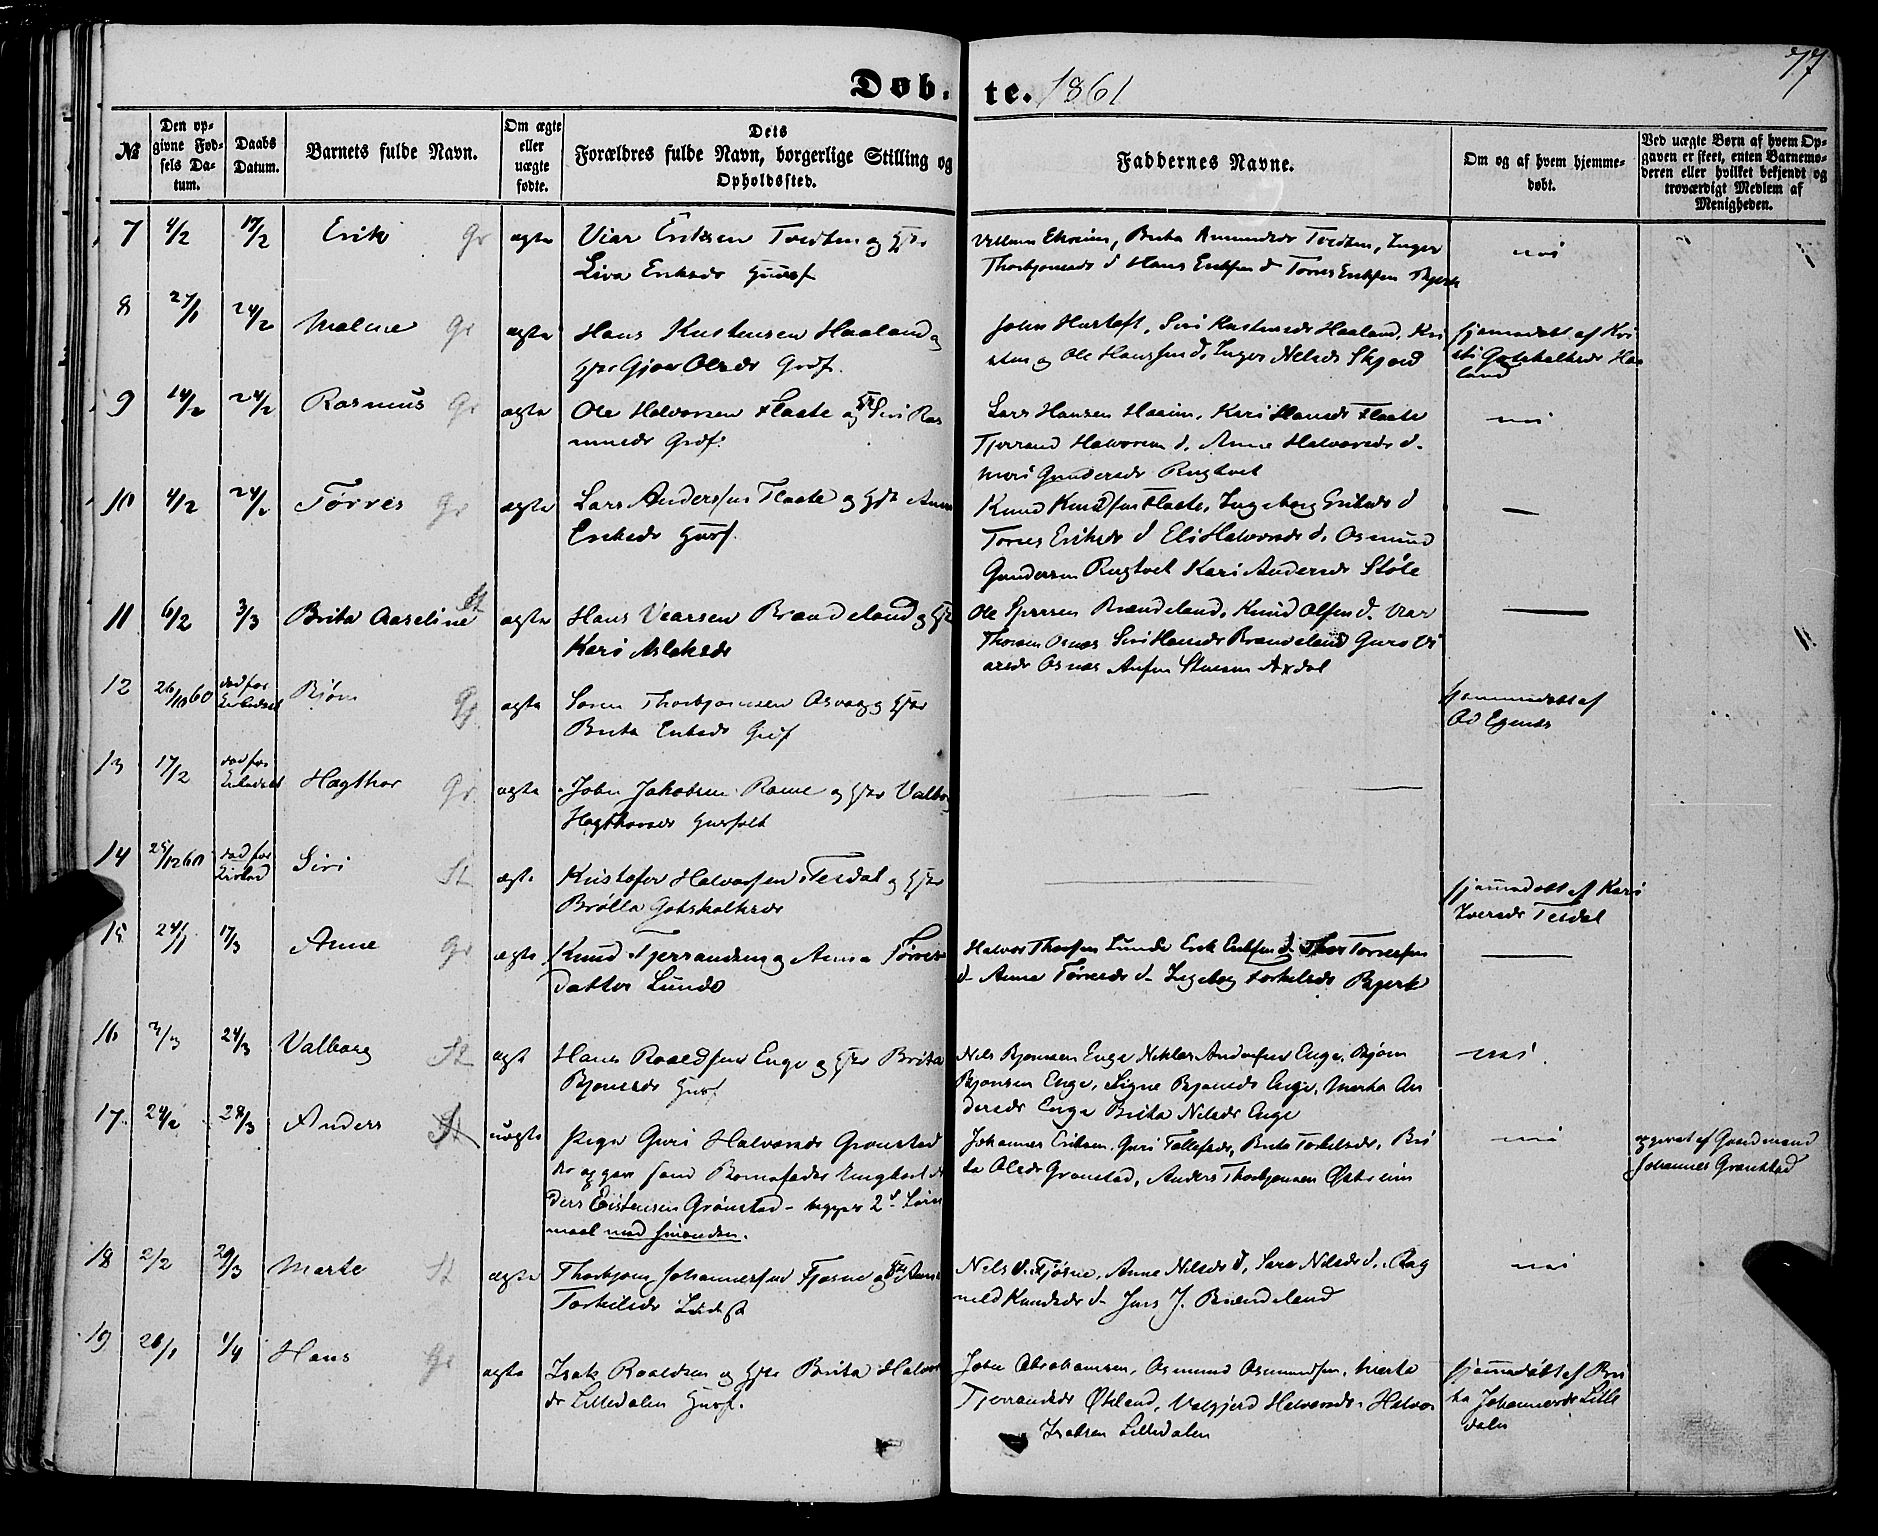 77
Døb- te. 1861
№
Den op-
givne Fød-
sels Da-
tum.
Daabs
Datum.
Barnets fulde Navn.
Om ægte
eller
uægte
fødte.
Dets
Forældres fulde Navn, borgerlige Stilling og
Opholdssted.
Faddernes Navne.
Om og af hvem hjemme-
døbt.
Ved uægte Børn af hvem Op-
gaven er skeet, enten Barnemo-
deren eller hvilket bekjendt og
troværdigt Medlem af
Menigheden.
7 4/2 17/2 Erik Gr ægte Viar Eriksen Tvedten og Hstr
Liva Eriksdr Gurf
Brita Amundsdr Tvedten, Inger
Thorbjornsdr d Hans Eriksen d Torres Eriksen Bjerk
nei
8 27/1 24/2 Malene Gr ægte Hans Kristensen Haaland og
Hstr Gjoa Olsdr Grdf.
John Hustoft, Siri Kristensdr Haaland, Kri
sten og Ole Hanssen d, Inger Nilsdr Skjold
hjemmedøbt af Kri
sti Gotskalksdr Haa
land
9 14/2 24/2 Rasmus Gr ægte Ole Halvorsen Flaate og Hstr Siri Ras
musdr Grdf.
Lars Hansen Haaim, Kari Hansdr Flaate
Tjerrand Halvorsen d, Anne Halvorsdr d.
Mari Gundersdr Rugtvet
nei
10 4/2 24/2 Tørres Gr ægte Lars Anderssen Flaate og Hstr Anna
Eriksdr Gurf.
Knud Knudssen Flaate, Ingeborg Eriksdr d
Torres Eriksdr d Eli Halvorsdr d. Osmund
Gundersen Rugtvet Kari Andersdr Støle
—
11 6/2 3/3 Brita Aaseline St ægte Hans Vearsen Brændeland og Hstr
Kari Aslaksdr
Ole Brændeland, Knud Olsen d. Viar
Thorsen Osnæs Siri Hansdr Brændeland Guro Vi
arsdr Osnæs
—
12 26/10 60 død før
Bjørn Gr ægte Soren Thorbjørnsen Osvaag og Hstr
Brita Eriksdr Grdf
hjemmedøbt af
Od Egenæs
13 17/2 død før
Hagthor Gr ægte John Jakobsen Rame og Hstr Valbor
Hagthorsdr
— — —
14 25/12 60 død før
Siri St ægte Kristofer Halvorsen Tesdal og Hstr
Brølla Gotskalksdr
—
hjemmedøbt af Kari
Iversdr Tesdal
15 24/1 17/3 Anne Gr ægte Knud Tjerrandsen og Anna Tørres
datter Lunde
Halvor Thorsen Lunde Erik Eriksen d. Thor Torressen
d- Anna Tørresdr d- Ingeborg Torkelsdr Bjerk
—
16 3/3 24/3 Valborg St ægt Hans Roaldsen Enge og Hstr Brita
Bjornsdr Gur.
Nils Bjornsen Enge Niklas Andersen Enge, Bjørn
Bjornsen Enge, Signe Bjornsdr Enge, Marta An
dersdr Enge Brita Nilsdr Enge
nei.
17 24/2 28/3 Anders St uægte Pige Guri Halvorsdr Grønstad
der opgav som Barnefader Ungkarl An
ders Eristensen Grønstad - begges 2d Leier
maal med hinanden.
Johannes Eriksen, Guri Tollefsdr, Brita Torkelsdr, Bri
ta Olsdr Grønstad, Anders Thorbjornsen Østreim
nei
opgivet af Gaardmand
Johannes Grønstad
18 2/2 29/3 Marte St ægte Thorbjorn Johannessen Fjøsne og Hstr Anna
Torkilsdr
Nils d. Fjøsne, Anne Nilsdr d, Sara Nilsdr d. Rag
nild Knudsdr d- Jens J. Brændeland
nei
19 28/1 1/4 Hans Gr ægte Isak Roaldsen og Hstr Brita Halvors
dr Lilledalen Gurf.
John Abrahamsen, Osmund Osmundsen, Marta
Tjerrandsdr Økland, Valgjerd Halvorsdr. Halvor
Isaksen Lilledalen
hjemmedøbt af Bri
ta Johannesdr Lille
dalen